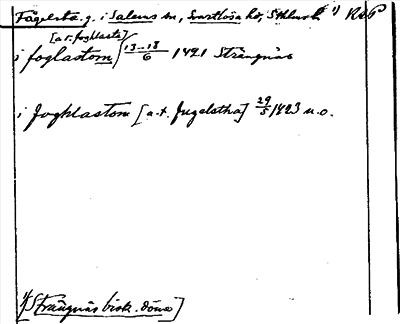 Fågelsta. g. i Salems sn, Svartlösa hd, Sthlms l. 1) RAP
[a. t. foghlasta]
i foglastom 13-18/6 1421 Strängnäs
i Foghlastom [a. t. Fugelstha] 29/5 1423 u.o.
1) [Strängnäs bisk. döme]